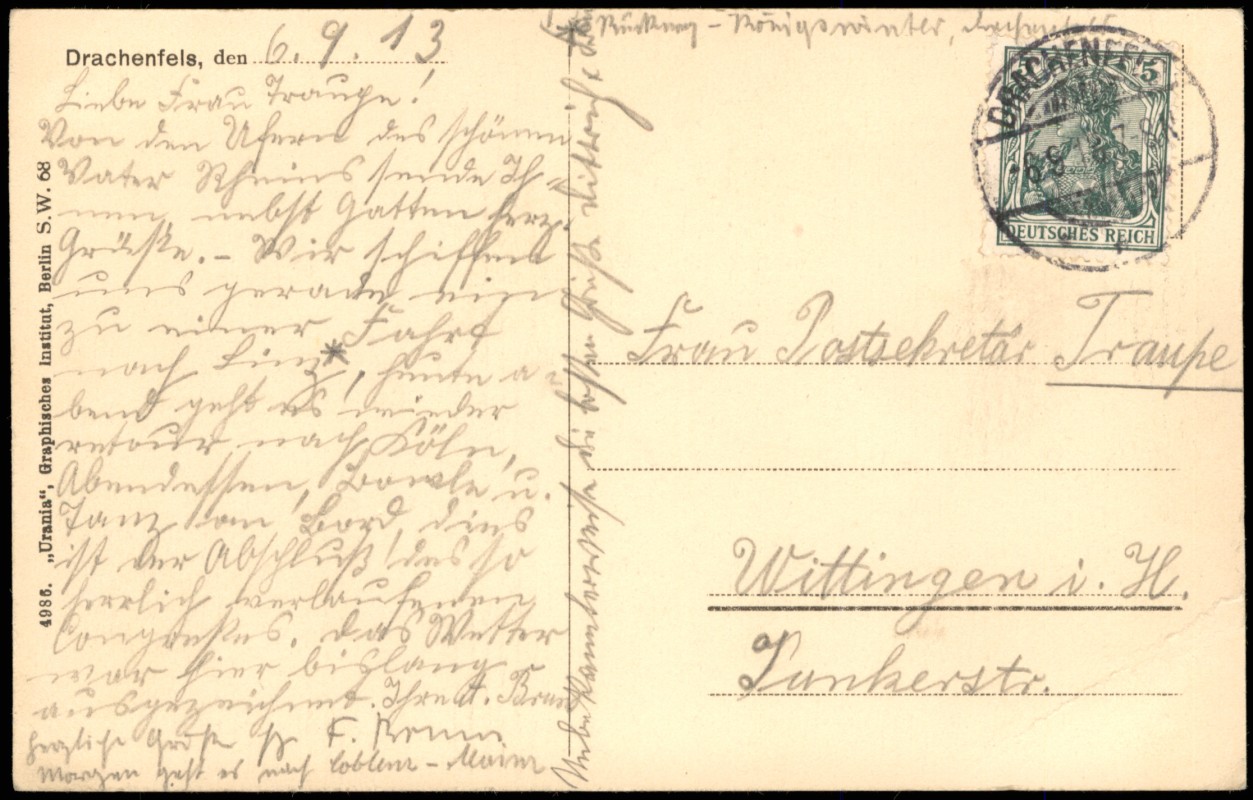 * Rückweg - Königswinter, Drachenfels
Drachenfels, den 6. 9. 13
Liebe Frau Traupe!
Von den Ufern des schönen
Vater Rheins sende Ih=
nen nebst Gatten herzl.
Grüße. - Wir schiffen
uns gerade ein
zu einer Fahrt
nach Linz*, heute a=
bend geht es wieder
retour nach Köln,
Abendessen, Bowle u.
Tanz an Bord, dies
ist der Abschluß des so
herrlich verlaufenen
Congresses. Das Wetter
war hier bislang
ausgezeichnet. Ihre A.
herzliche Grüße
Morgen geht es nach Coblenz - Mainz
die besten Grüße
4986. „Urania“, Graphisches Institut, Berlin S. W. 68
DRACHENFELS
5
DEUTSCHES REICH
Frau Postsekretär Traupe
Wittingen i. H.
Junkerstr.